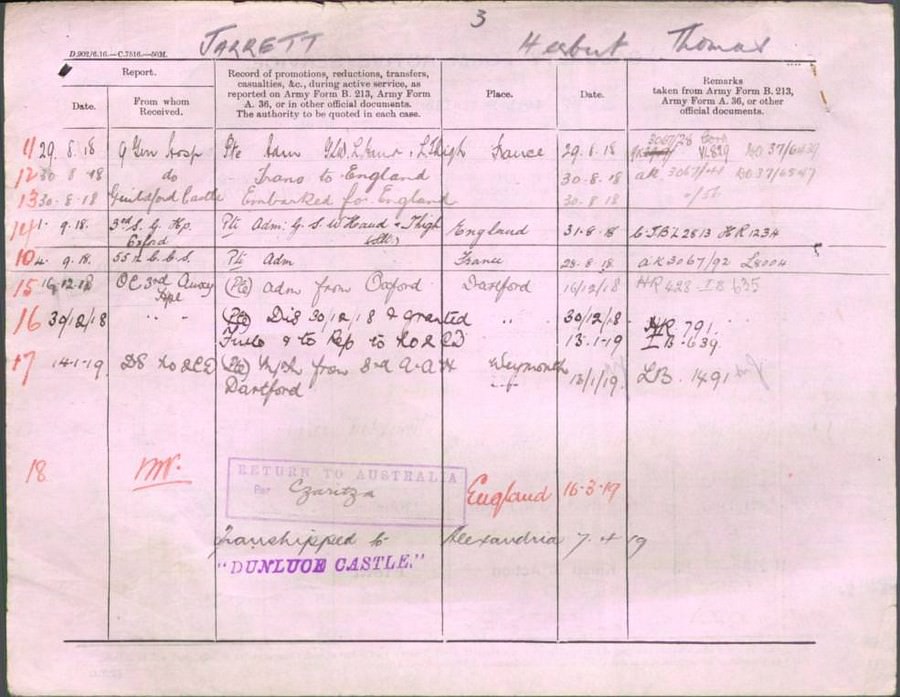 3
JARRETT Herbert Thomas
D.902/6.16.—C.7516.—50M.
Report.
Date.
From whom Received.
Record of promotions, reductions, transfers, casualties, &c., during active service, as reported on Army Form B. 213, Army Form A. 36, or in other official documents. The authority to be quoted in each case.
Place.
Date.
Remarks taken from Army Form B. 213, Army Form A. 36, or other official documents.
11 29.8.18 9 Gen Hosp Pte Adm GSW L Thigh France 29.8.18 DO 37/6439
12 30 8 18 do Trans to England 30.8.18 AK 3067
13 30.8.18 Guildford Castle Embarked for England 30.8.18
14 1. 9.18. 3rd S. G. Hp. Oxford Pte Adm: G.S.W Hand & Thigh England 31-8-18 HR 1234
10 4. 9.18. 55th C.C.S. Pte Adm France 28.8.18 AK 3067/92 L8004
15 16.12.18 OC 3rd Auxy Hpl (Pte) adm from Oxford Dartford 16/12/18 HR 428 IB 635
16 30/12/18 " " (Pte) Dis 30/12/18 & granted " 30/12/18 HR 791.
Furlo & to Rep to No 2 CD 13.1.19 IB 639
17 14-1-19. No 2 CD (Pte) M/in from 3rd A.A.H Weymouth 13/1/19. LB. 1491
Dartford
18 RETURN TO AUSTRALIA
Per Czaritza England 16-3-19
Transhipped to Alexandria 7. 4 19
"DUNLUCE CASTLE."